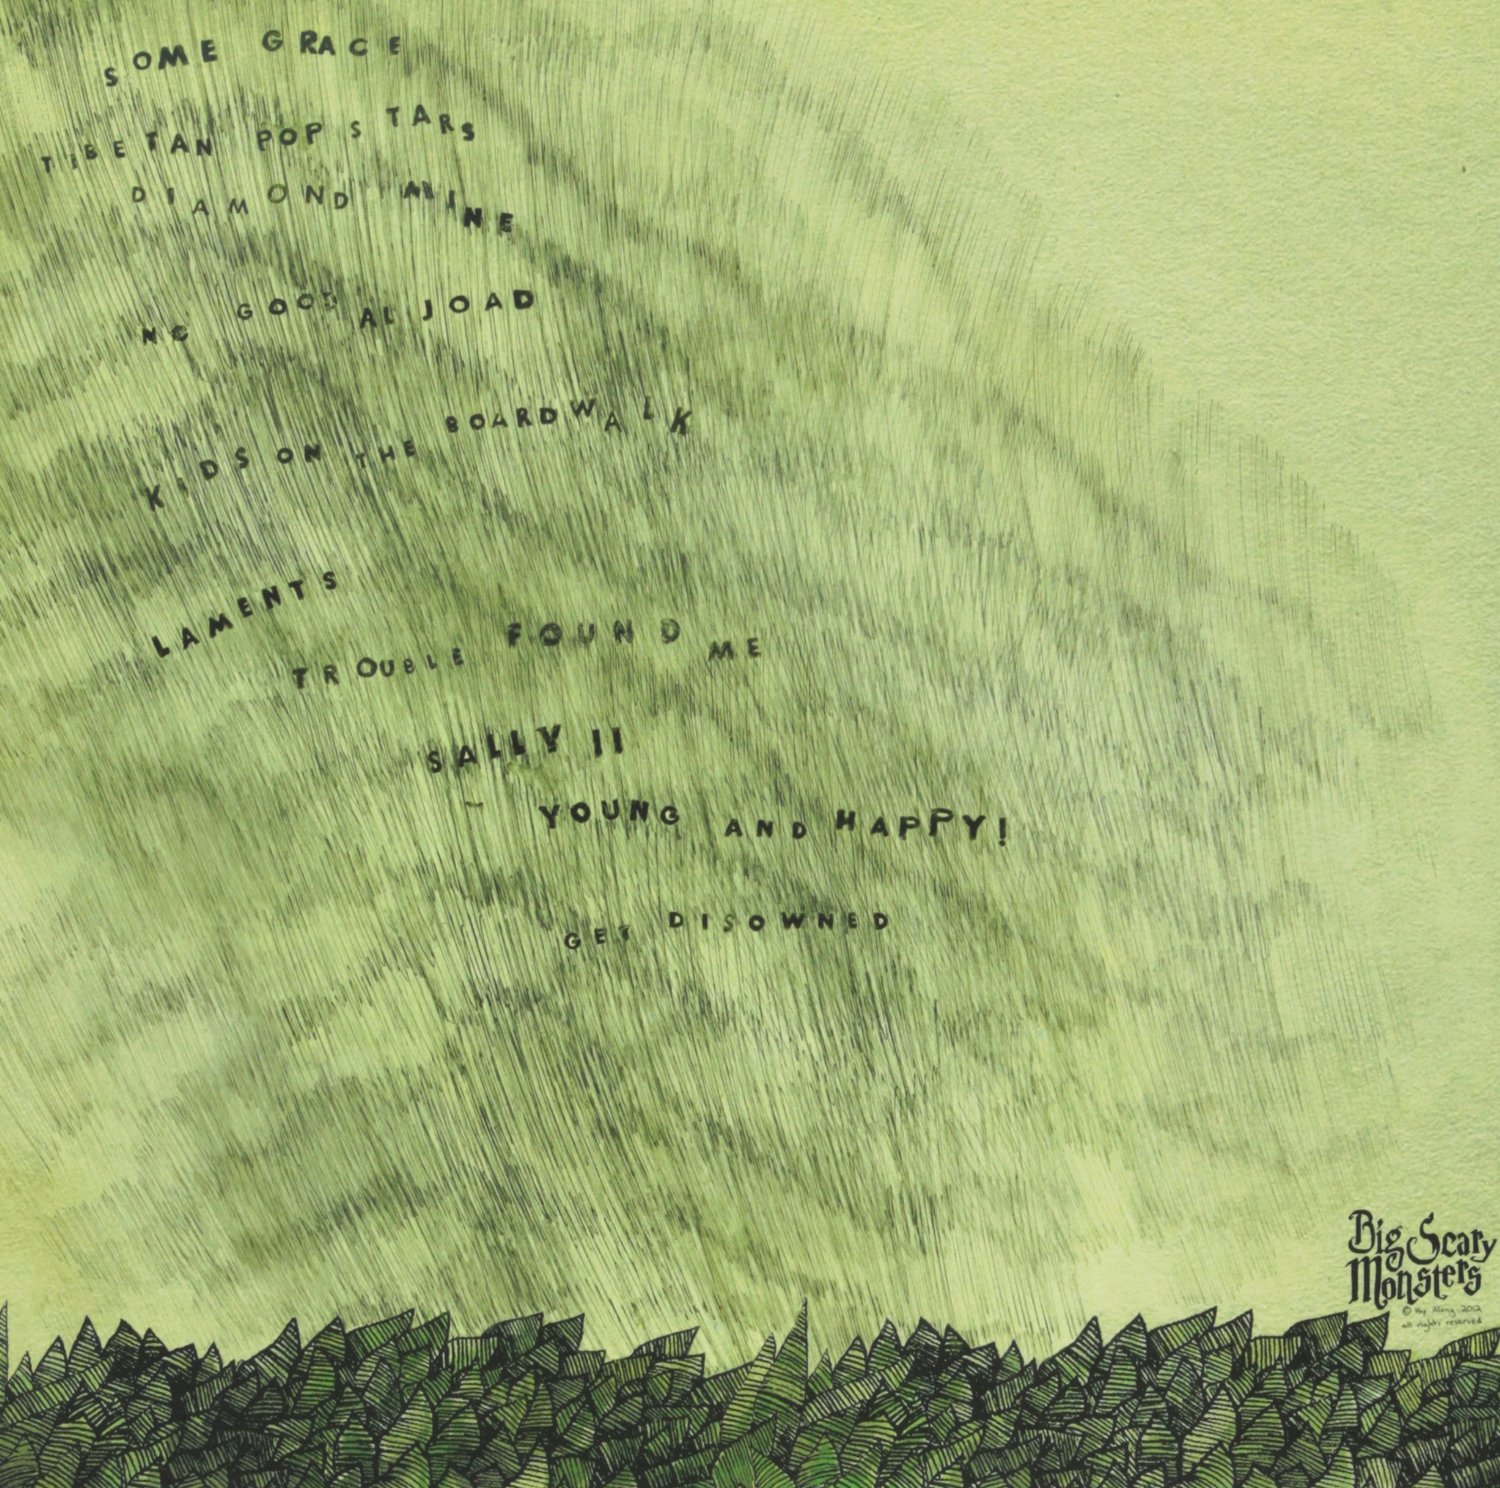 SOME GRACE
TIBETAN POP STARS
DIAMOND MINE
NO GOOD AL JOAD
KIDS ON THE BOARDWALK
LAMENTS
TROUBLE FOUND ME
SALLY II
YOUNG AND HAPPY!
GET DISOWNED
Big Scary
Monsters
© Hop Along 2012
all rights reserved